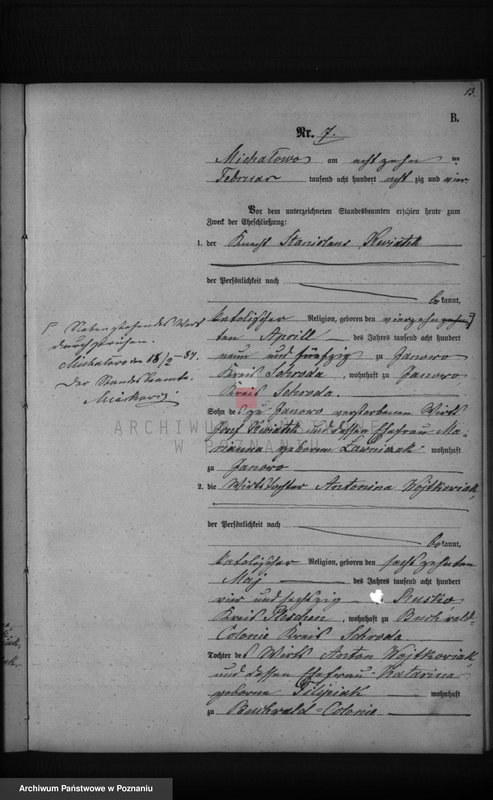 13.
B.
Nr. 7.
Michałowo am acht zehn ten
Februar tausend acht hundert acht zig und vier
Vor dem unterzeichneten Standesbeamten erschien heute zum
Zweck der Eheschließung:
1. der Knecht Stanislaus Kwiatek
der Persönlichkeit nach
be kannt,
katolischer Religion, geboren den vierzehn
ten Aprill des Jahres tausend acht hundert
neun und fünfzig zu Janowo
Kreis Schroda, wohnhaft zu Janowo
Kreis Schroda.
Sohn des zu Janowo verstorbenen Wirts
Kwiatek und dessen Ehefrau Ma-
rianna geborene Ławniczak wohnhaft
zu Janowo
2. die Wirtstochter Antonina Wojtkowiak,
der Persönlichkeit nach
be kannt,
katolischer Religion, geboren den sechs zehnten
Maj des Jahres tausend acht hundert
vier und sechszig zu Rusko
Kreis Pleschen, wohnhaft zu Buchwald-
Colonie Kreis Schroda
Tochter des Wirts Anton Wojtkowiak
und dessen Ehefrau Katarina
geborne Filipiak wohnhaft
zu Buchwald-Colonie
Nebenstehendes Wort
Michałowo den 18/2 - 84.
Der Standesbeamte.
ARCHIWUM PAŃSTWOWE
W POZNANIU
Archiwum Państwowe w Poznaniu